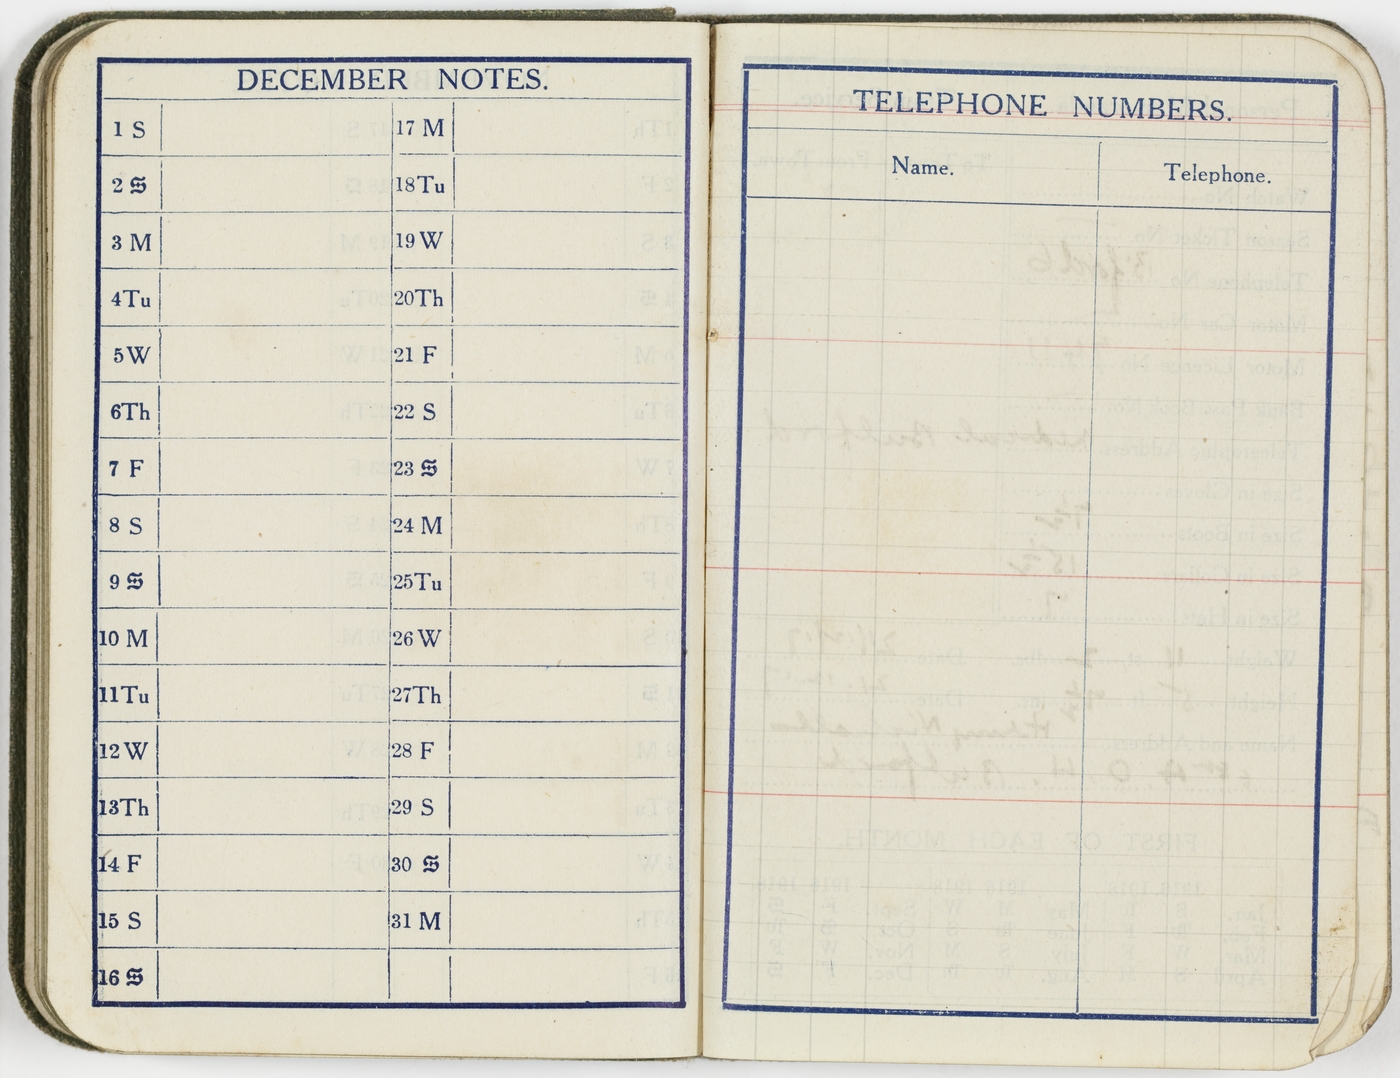 DECEMBER NOTES.
1 S
2 S
3 M
4 Tu
5 W
6 Th
7 F
8 S
9 S
10 M
11 Tu
12 W
13 Th
14 F
15 S
16 S
17 M
18 Tu
19 W
20 Th
21 F
22 S
23 S
24 M
25 Tu
26 W
27 Th
28 F
29 S
30 S
31 M
TELEPHONE NUMBERS.
Name. Telephone.